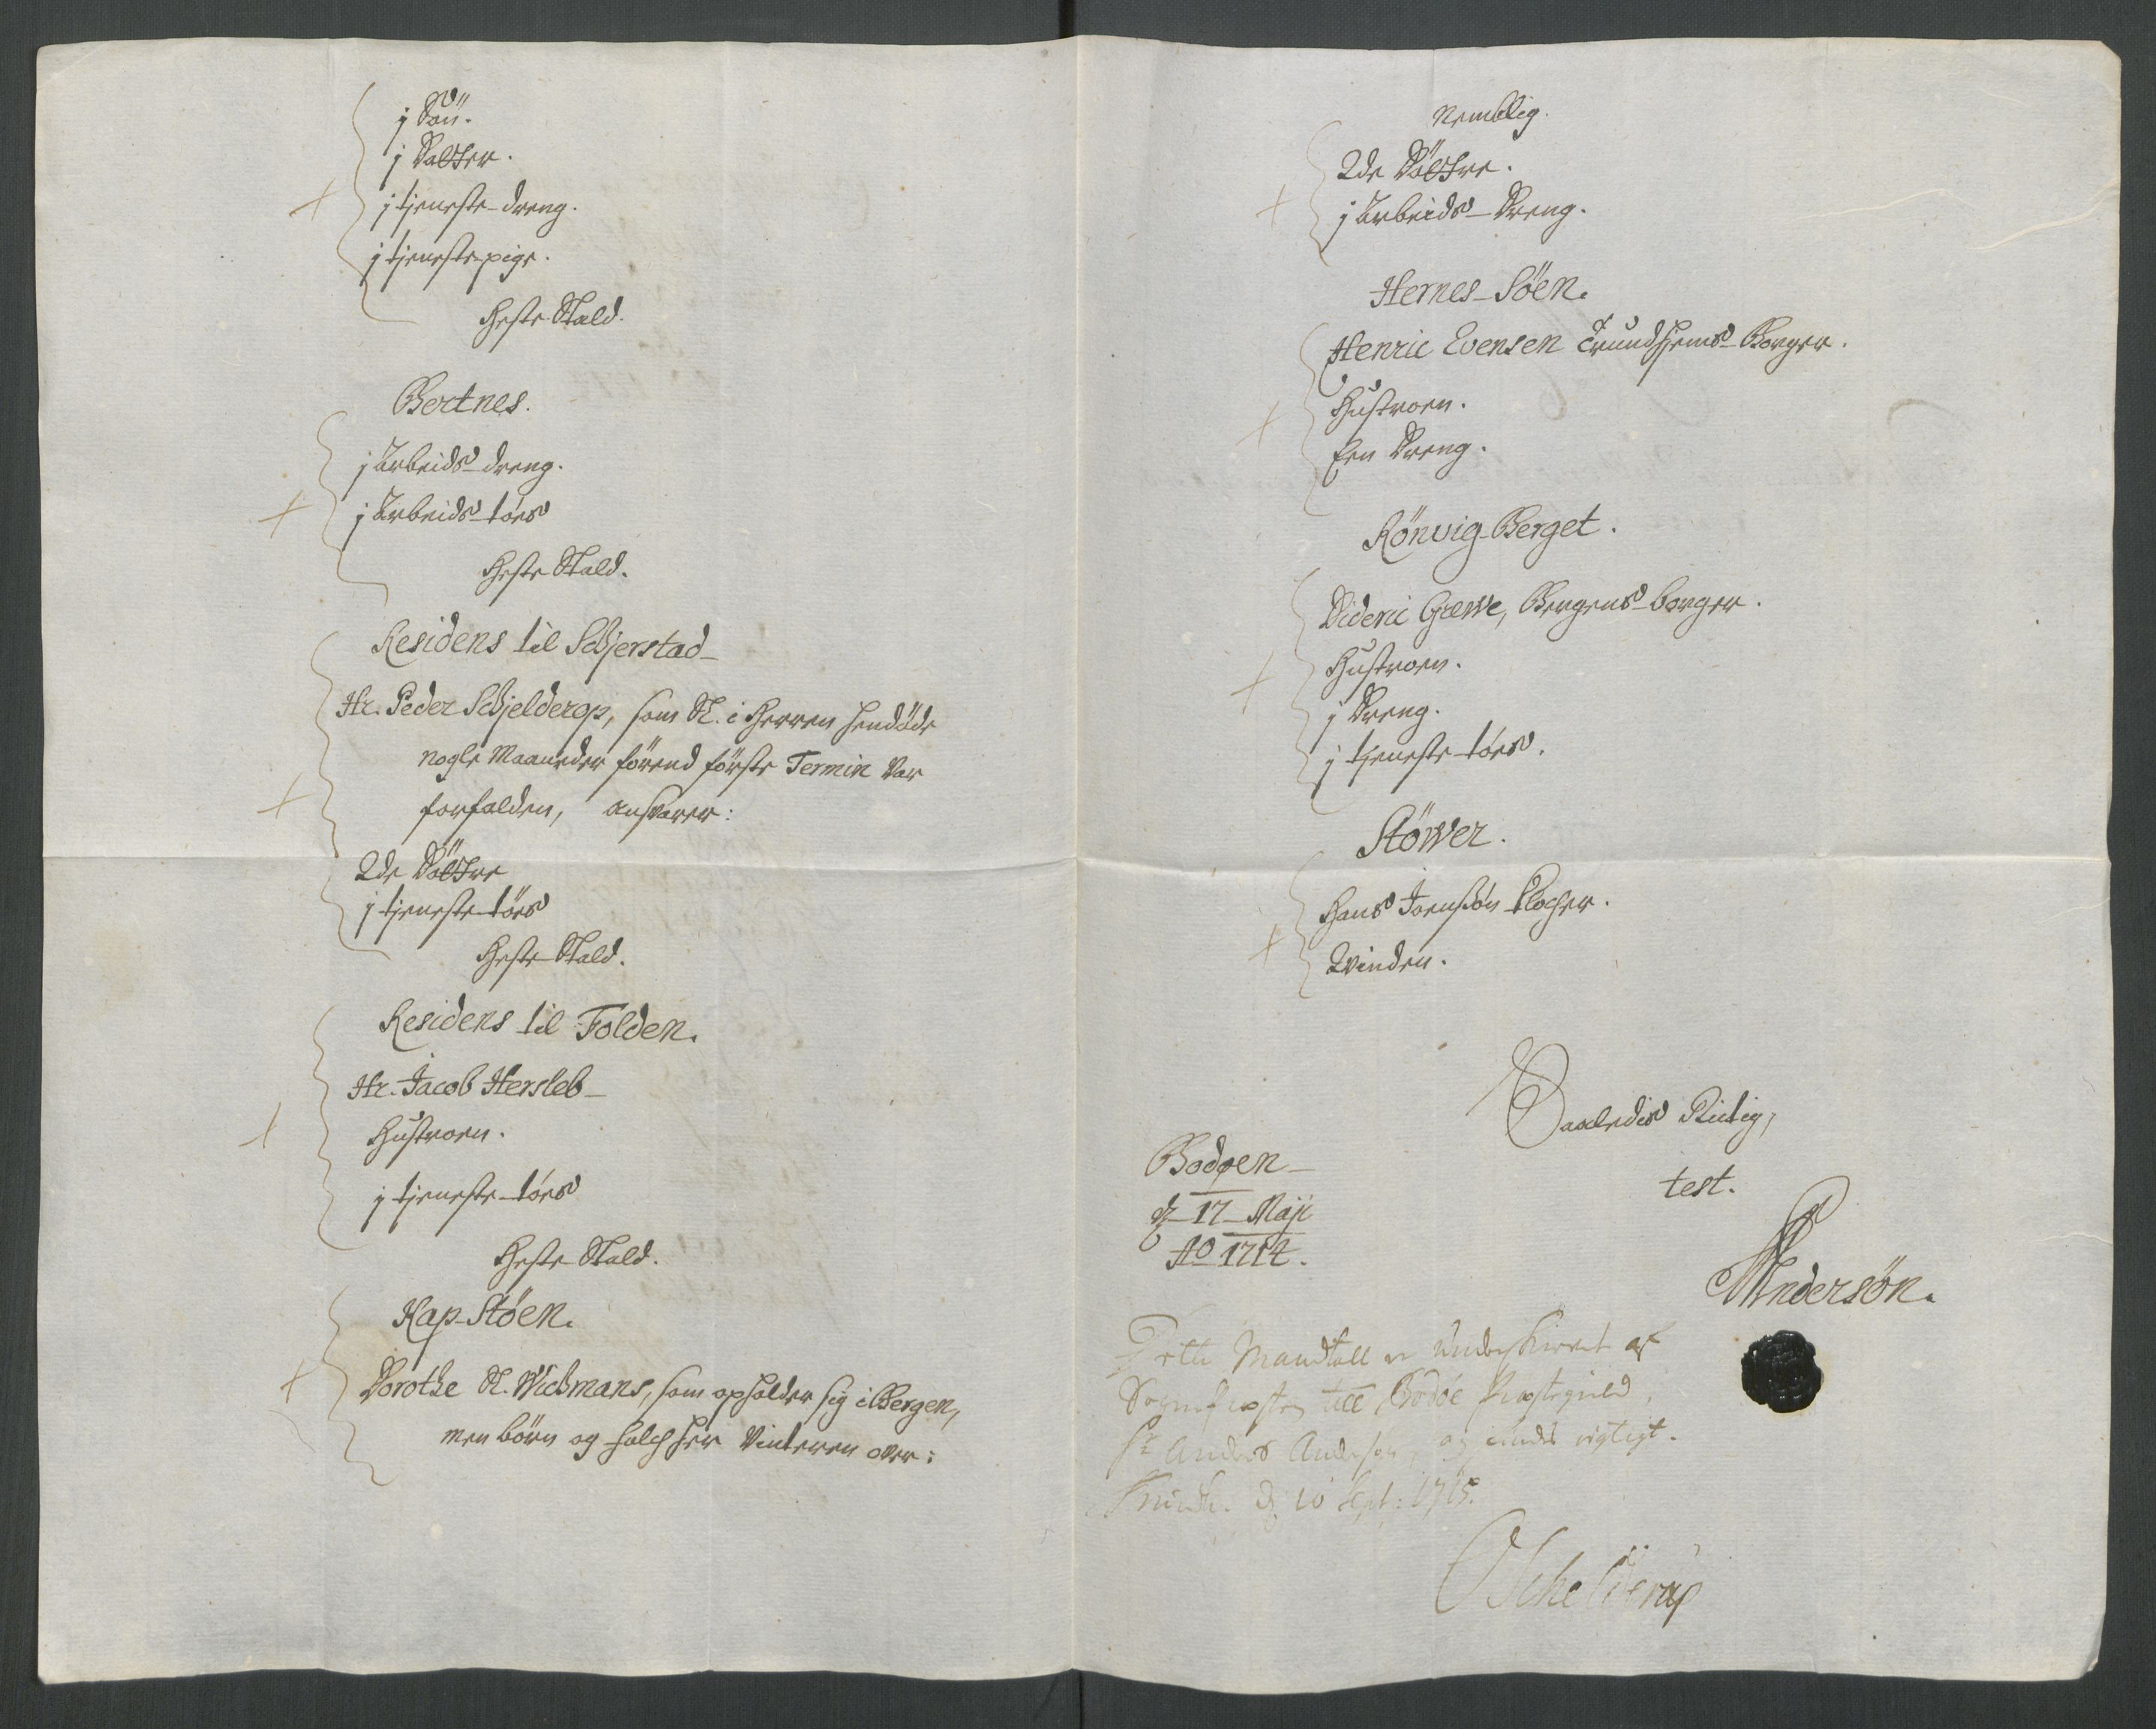 j Sön.
j Datter.
j tjeneste-dreng.
j tjeneste-pige.
Heste Stald.
Bertnes.
j Arbeids-dreng.
j Arbeids-tøes
Heste Stald.
Residens til Schjerstad-
Hr. Peder Schjelderop, som St. i Herren hendøde
nogle Maaneder förend förste Termin var
forfalden, anfører:
2de Döttre
j tjeneste-töes
Heste-Stald.
Residens til Folden.
Hr. Jacob Hersleb-
Hustroen.
j tjeneste-töes
Heste Stald.
Hap-Stöen.
Dorothe Sl. Wichmans, som opholder sig i Bergen,
men börn og folch her Vinteren over:
Nemblig.
2de Döttre.
j Arbeids-Dreng.
Hernes-Söen.
Henric Evensen Trundhjems-Borger.
Hustroen.
Een Dreng.
Rönvig-Berget.
Dideric Græwe, Bergens-borger.
Hustroen.
j Dreng.
j tjeneste-töes.
Stöwer.
Hans Joensön Klocher.
Qvinden.
Saaledis Rictig,
test.
Bodøen-
d. 17 Maji
Ao 1714.
Andersön.
Dette Mandtall er underskrevet af
Sognepresten till Bodöe Præstegield,
Hr Anders Andersen, og eendes rigtigt.
Trundh. d. 10 Sept: 1715.
Schelderup